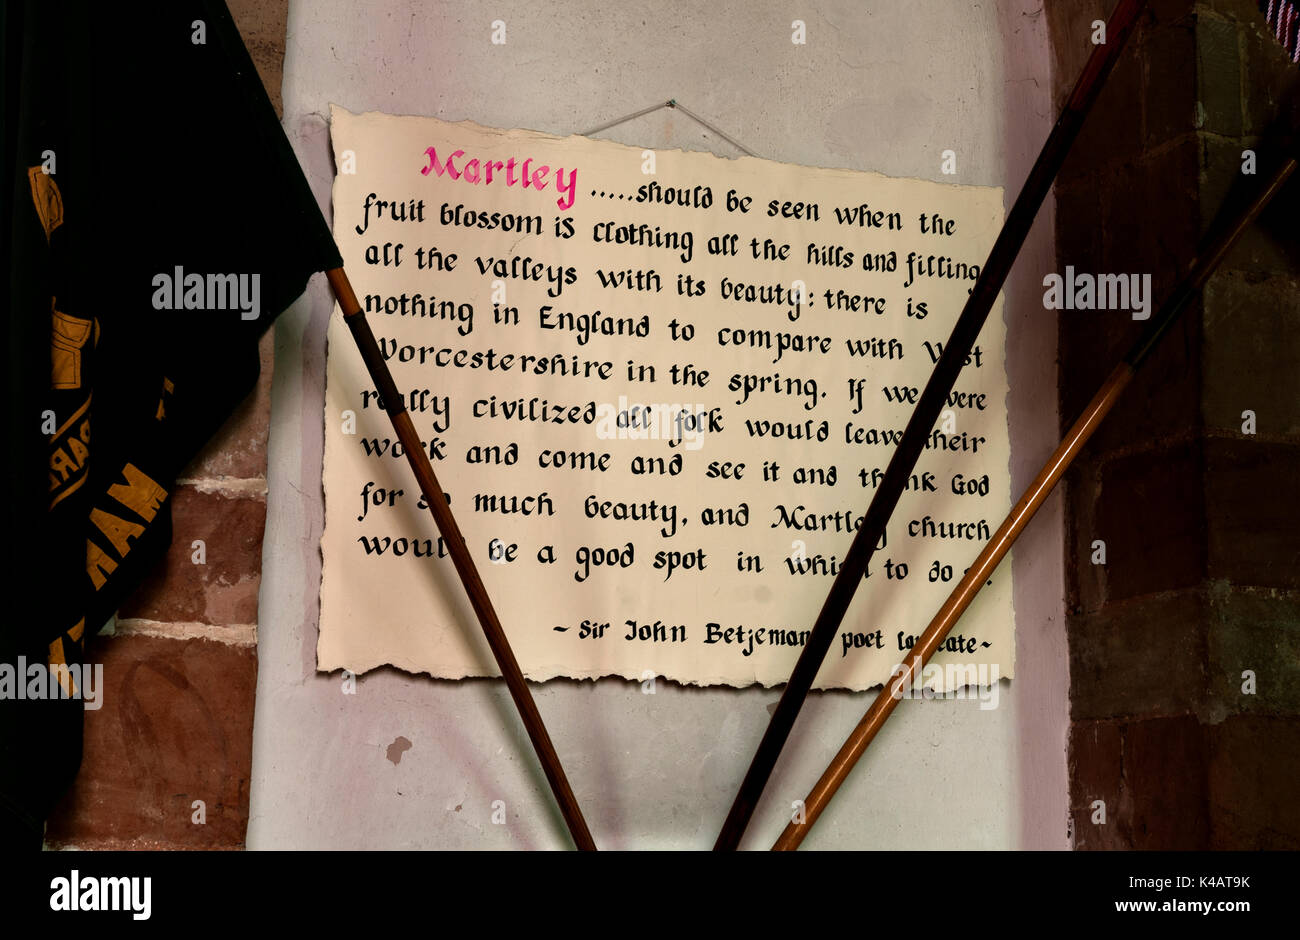 Martley .....should be seen when the
fruit blossom is clothing all the hills and filling
all the valleys with its beauty: there is
nothing in England to compare with West
Worcestershire in the spring. If we were
really civilized all folk would leave their
work and come and see it and thank God
for so much beauty, and Martley church
would be a good spot in which to do so.
~ Sir John Betjeman, poet laureate ~
MAR
alamy
Image ID: K4AT9K
www.alamy.com